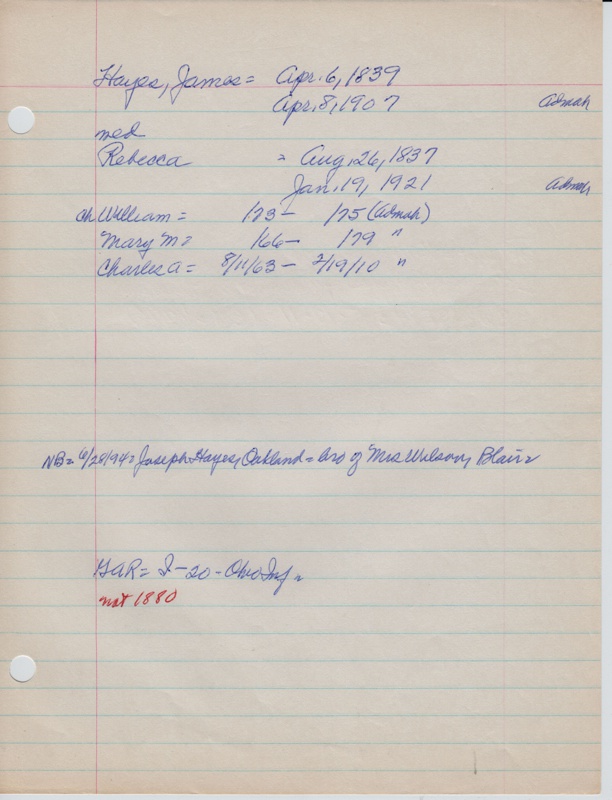 Hayes, James = Apr. 6, 1839
Apr. 8, 1907 Admah
med
Rebecca = Aug. 26, 1837
Jan. 19, 1921 Admah
ch William = 1/73 - 1/75 (Admah)
Mary M = 1/66 - 1/79 "
Charles A = 8/11/63 - 2/19/10 "
NB = 6/28/94 = Joseph Hayes, Oakland = bro of Mrs Wilson, Blair =
GAR = I - 20 - Ohio Inf =
not 1880